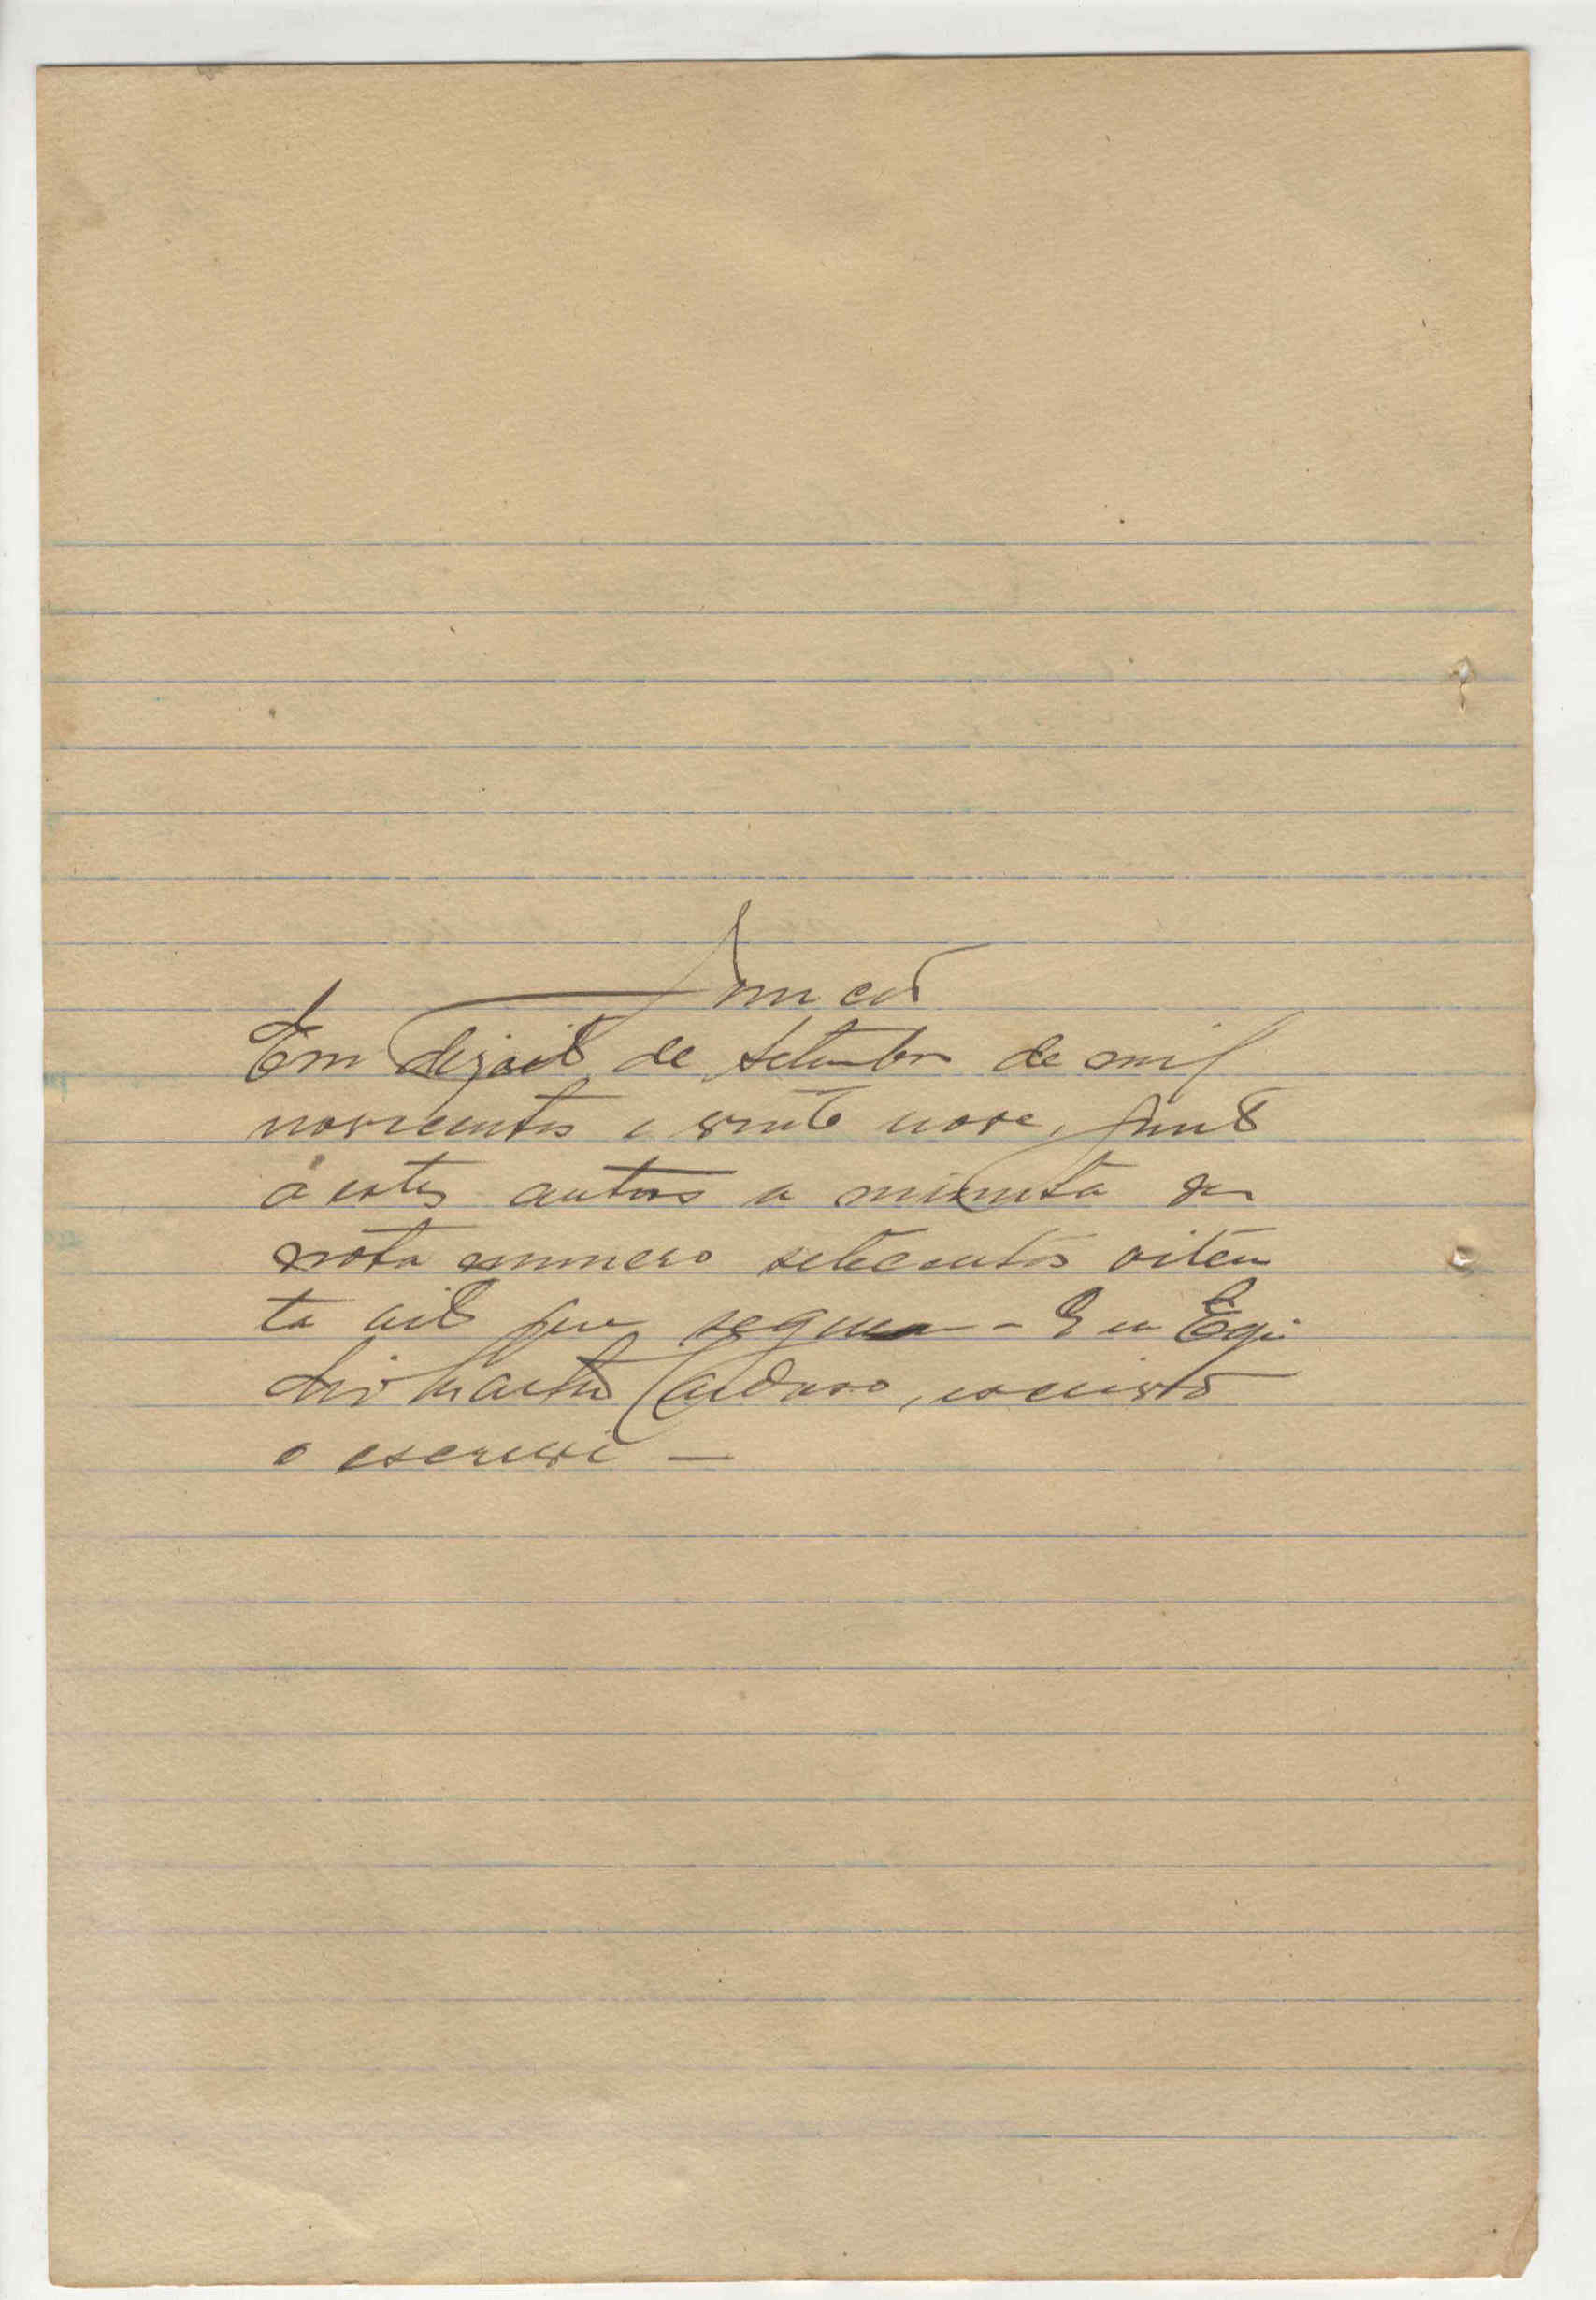 Juncção
Em dezoito de Setembro de mil
novecentos e vinte nove, junto
á estes autos a minuta da
nota numero setecentos oiten
ta oito que segue - Eu Egi
dio Martins Cardoso, escrivão
o escrevi -